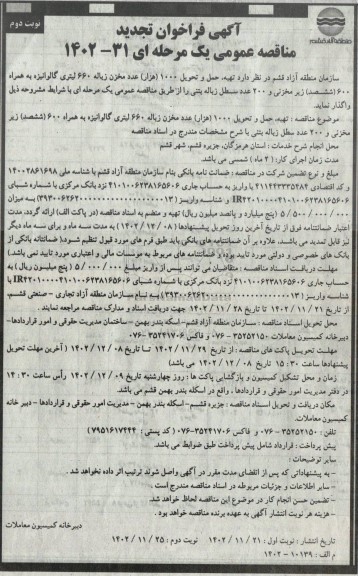 نوبت دوم
آگهی فراخوان تجدید
مناقصه عمومی یک مرحله ای ۳۱- ۱۴۰۲
سازمان منطقه آزاد قشم در نظر دارد تهیه، حمل و تحویل ۱۰۰۰ (هزار) عدد مخزن زباله ۶۶۰ لیتری گالوانیزه به همراه
۶۰۰ (ششصد) زیر مخزنی و ۲۰۰ عدد سطل زباله بتنی را از طریق مناقصه عمومی یک مرحله ای با شرایط مشروحه ذیل
واگذار نماید.
موضوع مناقصه : تهیه، حمل و تحویل ۱۰۰۰ (هزار) عدد مخزن زباله ۶۶۰ لیتری گالوانیزه به همراه ۶۰۰ (ششصد) زیر
مخزنی و ۲۰۰ عدد سطل زباله بتنی با شرح مشخصات مندرج در اسناد مناقصه
محل انجام شرح خدمات : استان هرمزگان، جزیره قشم، شهر قشم
مدت زمان اجرای کار: (۲ ماه) شمسی می باشد
مبلغ و نوع تضمین شرکت در مناقصه : ضمانت نامه بانکی بنام سازمان منطقه آزاد قشم با شناسه ملی ۱۴۰۰۲۸۶۱۶۹۸
و کد اقتصادی ۴۱۱۴۴۳۳۳۵۲۸۴ یا واریز به حساب جاری ۴۱۰۱۰۰۶۲۳۸۱۶۵۶۰۶ نزد بانک مرکزی با شماره شبای
۵/۵۰۰/۰۰۰/۰۰۰ (پنج میلیارد و پانصد میلیون ریال) تهیه و منضم به اسناد مناقصه (در پاکت الف) ارائه گردد، مدت
اعتبار ضمانتنامه فوق از تاریخ آخرین روز تحویل پیشنهادها (۱۴۰۲/۱۲/۰۸) به مدت سه ماه و برای سه ماه دیگر
نیز قابل تمدید می باشد، علاوه بر آن ضمانتنامه های بانکی باید طبق فرم های مورد قبول تنظیم شود.( ضمانتنامه بانکی از
بانک های خصوصی و دولتی مورد تایید بوده و ضمانتنامه های مربوط به موسسات مالی و اعتباری مورد تایید نمی باشد.)
مهلت دریافت اسناد مناقصه : متقاضیان می توانند پس از واریز مبلغ ۵/۰۰۰/۰۰۰ (پنج میلیون ریال) به
حساب جاری ۴۱۰۱۰۰۶۲۳۸۱۶۵۶۰۶ نزد بانک مرکزی با شماره شبای IR۲۲۰۱۰۰۰۰۴۱۰۱۰۰۶۲۳۸۱۶۵۶۰۶ با
به نام سازمان منطقه آزاد تجاری - صنعتی قشم،
از تاریخ ۱۴۰۲/۱۱/۲۱ تا تاریخ ۱۴۰۲/۱۱/۲۸ جهت دریافت اسناد و مدارک مناقصه مراجعه نمایند .
محل تحویل اسناد مناقصه : سازمان منطقه آزاد قشم- اسکله بندر بهمن - ساختمان مدیریت حقوقی و امور قراردادها-
دبیرخانه کمیسیون معاملات ۳۵۲۵۲۱۵۰-۰۷۶ فاکس ۳۵۲۴۱۷۰۶-۰۷۶
مهلت تحویل پاکت های مناقصه : از تاریخ ۱۴۰۲/۱۱/۲۹ تا تاریخ ۱۴۰۲/۱۲/۰۸ (آخرین مهلت تحویل
پیشنهادها ساعت ۱۵:۳۰ تاریخ ۱۴۰۲/۱۲/۰۸ می باشد)
زمان و محل تشکیل کمیسیون و بازگشایی پاکت ها : روز چهارشنبه تاریخ ۱۴۰۲/۱۲/۰۹ رأس ساعت ۱۴:۳۰
در دفتر مدیریت امور حقوقی و قراردادها، واقع در اسکله بندر بهمن قشم می باشد.
مکان دریافت و تحویل اسناد مناقصه : جزیره قشم- اسکله بندر بهمن - مدیریت امور حقوقی و قراردادها - دبیرخانه
کمیسیون معاملات
تلفن : ۳۵۲۵۲۱۵۰-۰۷۶ و فاکس ۳۵۲۴۱۷۰۶-۰۷۶ (کد پستی: ۷۹۵۱۶۱۷۴۴۴)
پیش پرداخت : قرارداد شامل پیش پرداخت طبق ضوابط می باشد.
سایر توضیحات :
- به پیشنهاداتی که پس از انقضای مدت مقرر در آگهی واصل شوند ترتیب اثر داده نخواهد شد .
- سایر اطلاعات و جزئیات مربوطه در اسناد مناقصه مندرج است .
- تضمین حسن انجام کار در موضوع این مناقصه لحاظ خواهد شد.
- هزینه هر نوبت انتشار آگهی به عهده برنده مناقصه خواهد بود .
دبیرخانه کمیسیون معاملات
تاریخ انتشار : نوبت اول : ۱۴۰۲/۱۱/۲۱ نوبت دوم : ۱۴۰۲/۱۱/۲۵
م الف : ۱۰۱۳۹-۱۴۰۲